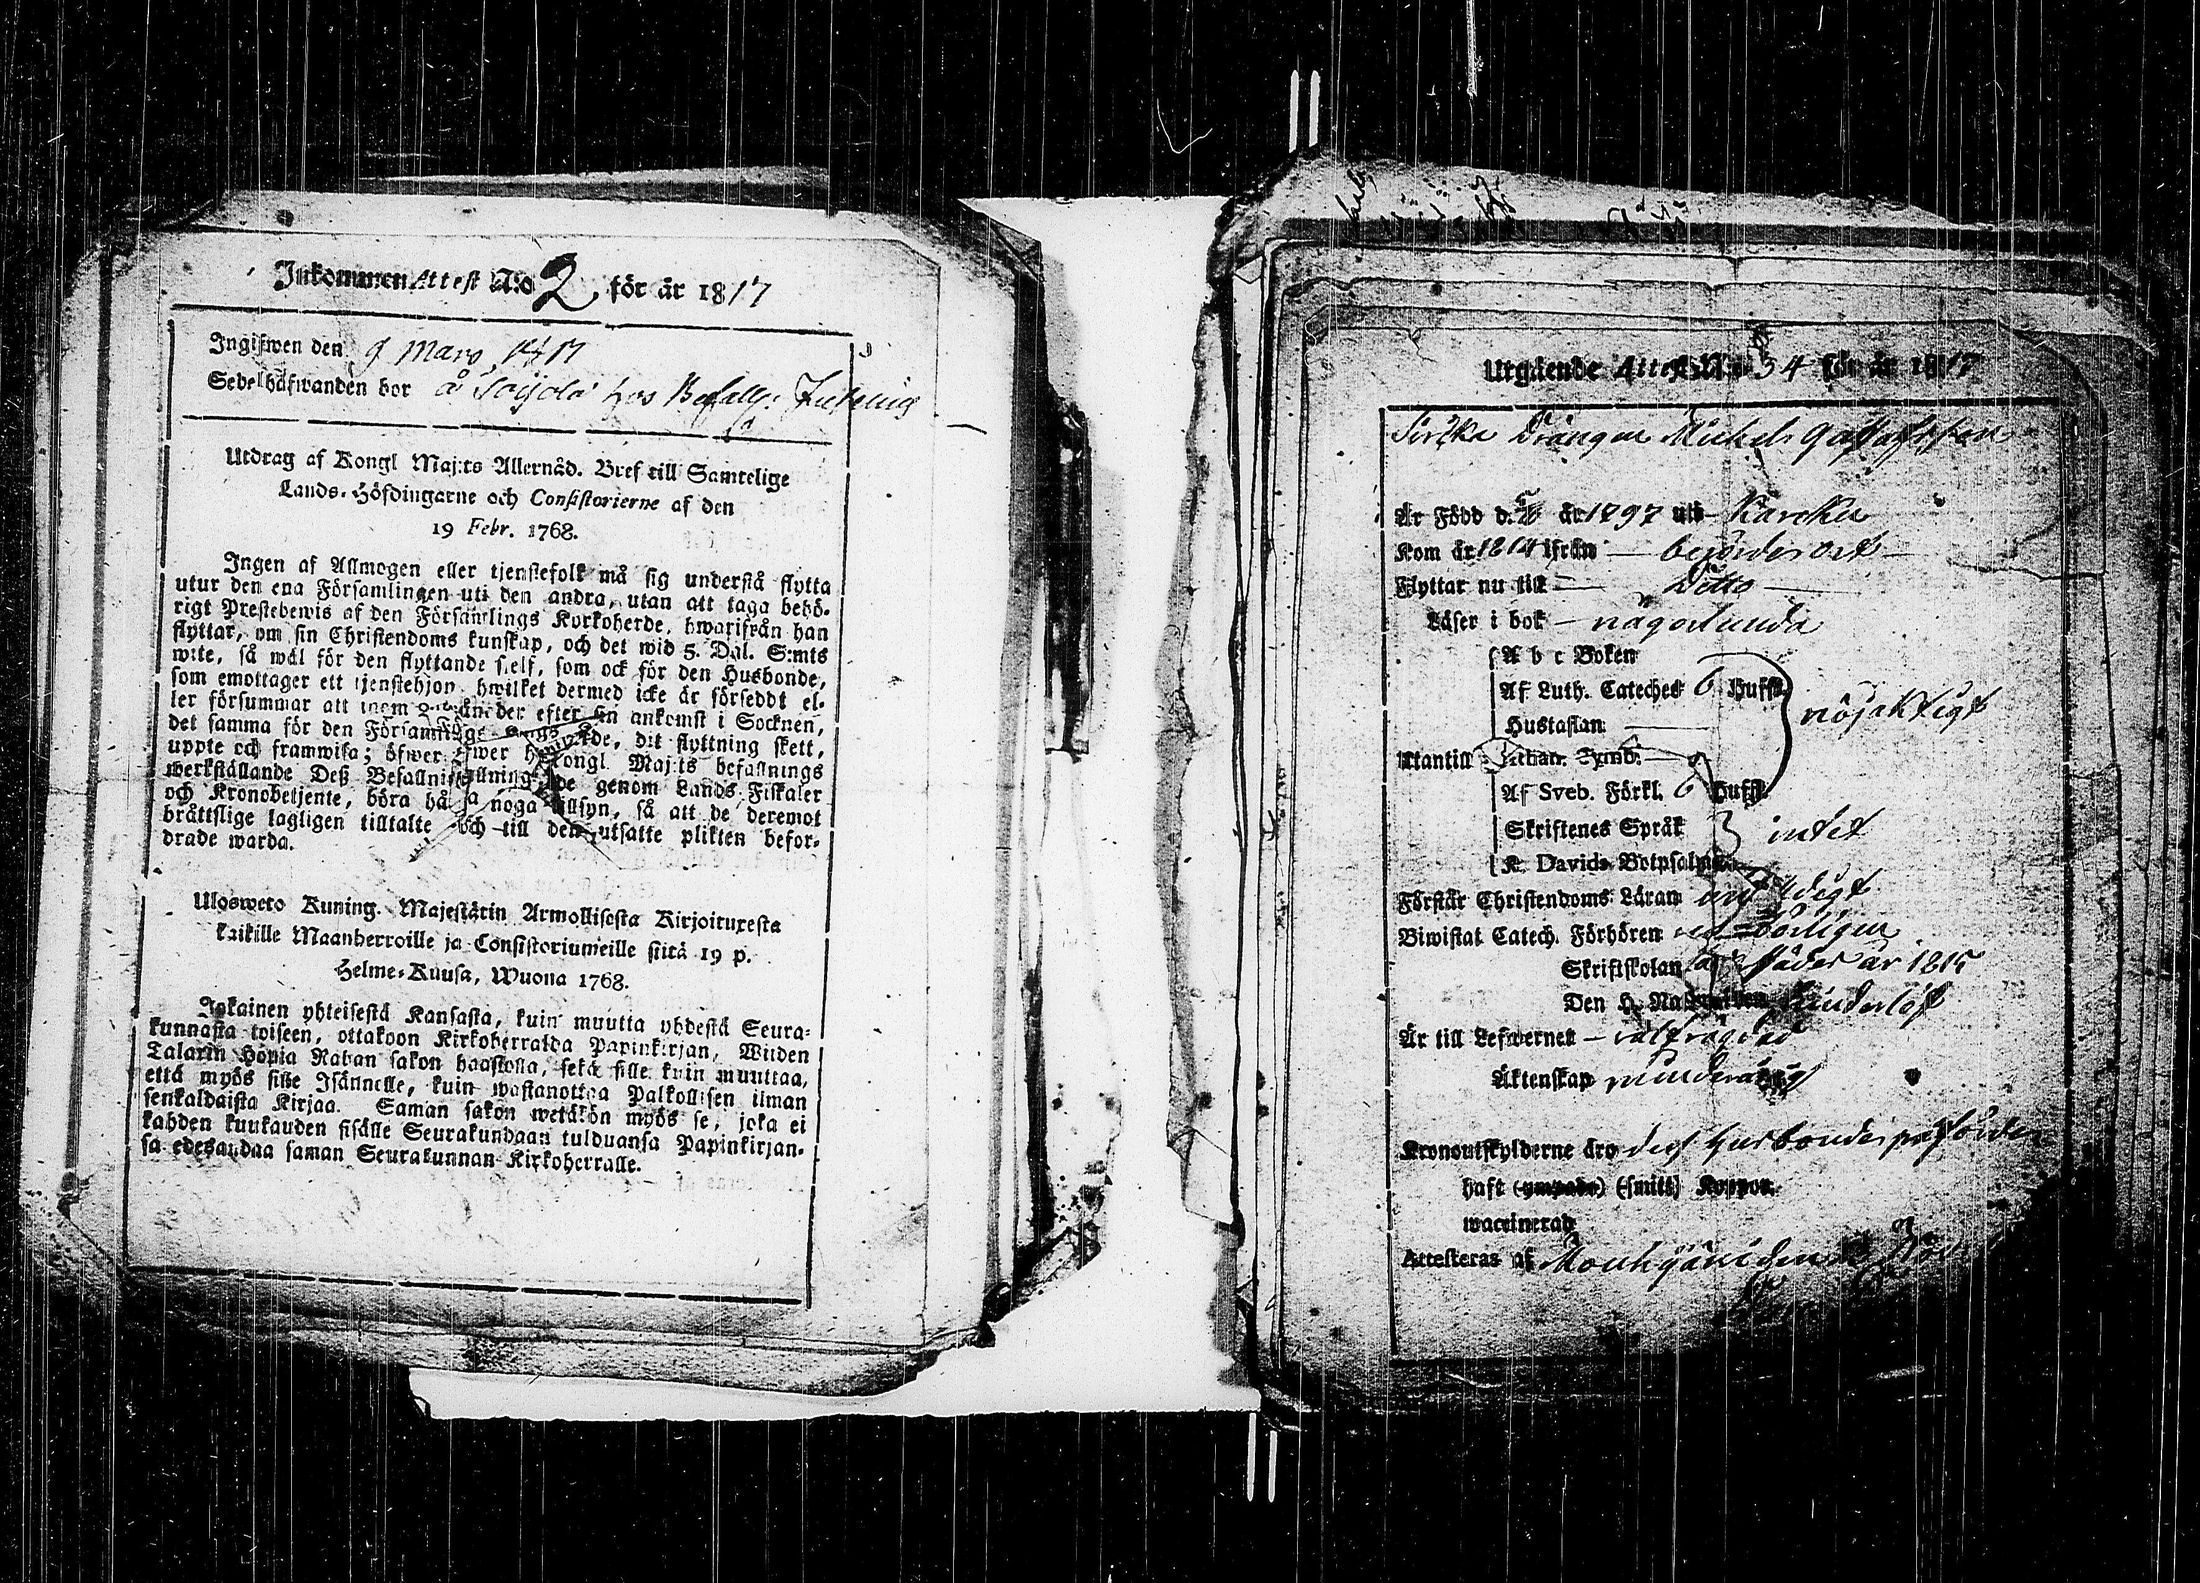 Inkommen Attest N:o 2 för år 1817
Ingifwen den 9 Mars 1817
Sedelhafwanden bor å hos Befallg:
Utdrag af Kongl Maj:ts Allernåd. Bref till Samtelige
Lands-Höfdingarne och Consistorierne af den
19 Febr. 1768.
Ingen af Allmogen eller tjenstefolk må sig understå flytta
utur den ena Församlingen uti den andra, utan att taga behö-
rigt Prestebewis af den Församlings Kyrkoherde, hwarifrån han
flyttar, om sin Christendoms kunskap, och det wid 5. Dal. S:mts
wite, så wäl för den flyttande sielf, som ock för den Husbonde,
som emottager ett tjenstehjon hwilket dermed icke är försedt el-
ler försummar att inom 2 månader efter sin ankomst i Socknen,
det samma för den Församlings herde, dit flyttning skett,
uppte och framwisa; öfwer Kongl. Maj:ts befallnings
werkställande Deß Befallnings genom Lands Fiskaler
och Kronobetjente, böra hafwa noga tillsyn, så att de deremot
bråttslige lagligen tilltalte och till den utsatte plikten befor-
drade warda.
Ulosweto Kuning. Majestätin Armollisesta Kirjoituxesta
kaikille Maanherroille ja Consistoriumeille siitä 19 p.
Helme-Kuusa, Wuona 1768.
Jokainen yhteisestä Kansasta, kuin muutta yhdestä Seura-
kunnasta toiseen, ottakoon Kirkoherralda Papinkirjan, Wiiden
Talarin Hopia Rahan sakon haastolla, sekä sille kuin muuttaa,
että myös sille Isännelle, kuin wastanottaa Palkollisen ilman
senkaldaista Kirjaa. Saman sakon wetäkön myös se, joka ei
kahden kuukauden sisälle Seurakundaan tulduansa Papinkirjan-
sa edesandaa saman Seurakunnan Kirkoherralle.
Utgående Attest N:o 34 för år 1817
Drängen Michel Gustafsson
Är Född d. år 1797 uti Karcku
Kom år 1814 ifrån — berörde ort —
Flyttar nu till — Ditto —
Läser i bok — någorlunda
A b c Boken
Af Luth. Cateches 6 Hufst. nöjaktigt
Hustaflan
Utantill Athan. Symb.
Af Sveb. Förkl. 6 Hufst.
Skriftenes Språk intet
K. Davids Botpsalmer
Förstår Christendoms Läran
Biwistat Catech. Förhören
Skriftskolan år 1815
Den H. Nattvarden hinderlöst
Är till Lefwernet — välfrägdad
Äktenskap minderårig
Kronoutskylderne äro des husbonde påförde
haft (ympade) (smitt) Koppor.
waccinerad
Attesteras af Mouhijärvi den